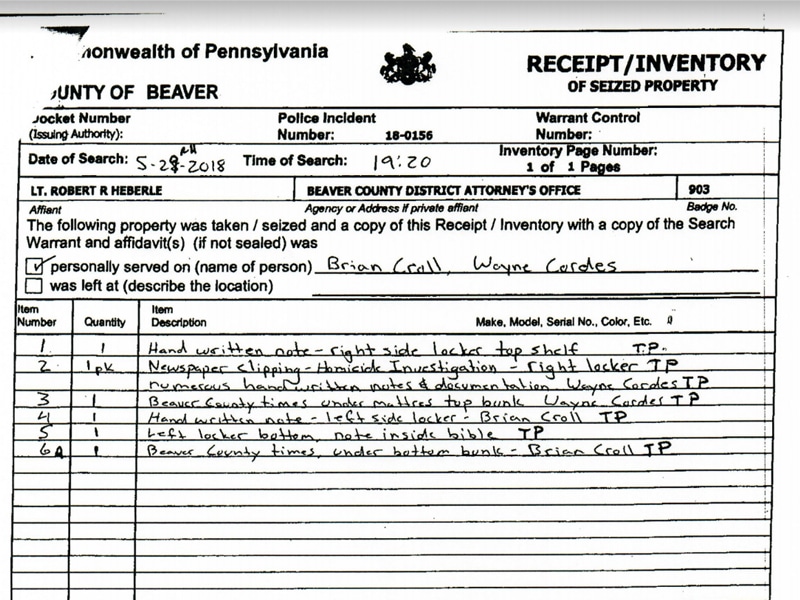 monwealth of Pennsylvania
RECEIPT/INVENTORY
OF SEIZED PROPERTY
UNTY OF BEAVER
Docket Number
(Issuing Authority):
Police Incident
Number: 18-0156
Warrant Control
Number:
Date of Search: 5-28-2018
Time of Search: 19:20
Inventory Page Number:
1 of 1 Pages
LT. ROBERT R HEBERLE BEAVER COUNTY DISTRICT ATTORNEY'S OFFICE 903
Affiant Agency or Address if private affiant Badge No.
The following property was taken / seized and a copy of this Receipt / Inventory with a copy of the Search
Warrant and affidavit(s) (if not sealed) was
personally served on (name of person) Brian Croll, Wayne Cordes
was left at (describe the location)
Item Number Quantity Item Description Make, Model, Serial No., Color, Etc.
1 1 Hand written note - right side locker top shelf T.P.
2 1pk Newspaper clipping - Homicide Investigation - right locker TP
numerous hand written notes & documentation Wayne Cordes TP
3 1 Beaver County times under mattres top bunk Wayne Cordes TP
4 1 Hand written note - left side locker - Brian Croll TP
5 1 Left locker bottom, note inside bible TP
6 1 Beaver County times, under bottom bunk - Brian Croll TP